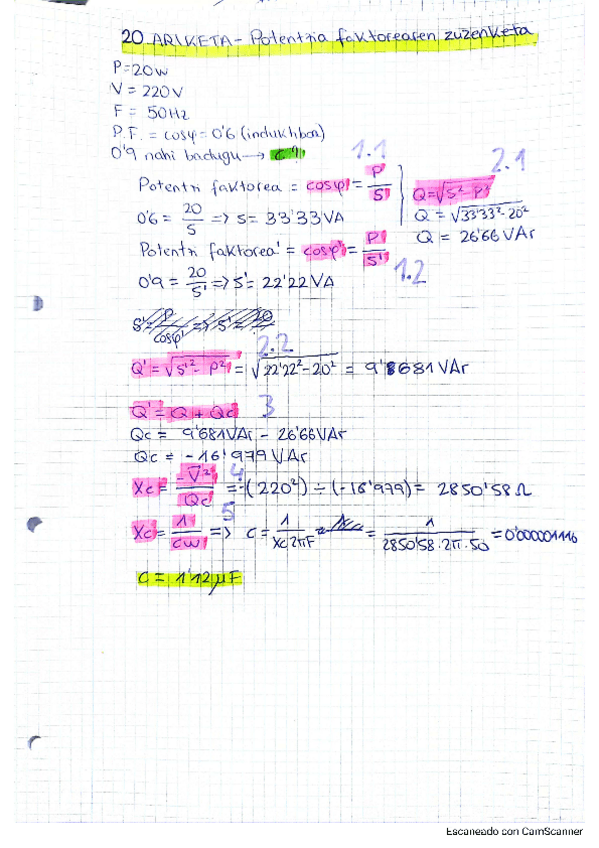 20 ARIKETA - Potentzia faktorearen zuzenketa
P=20W
V = 220V
F = 50Hz
P.F. = cosφ = 0'6 (induktiboa)
0'9 nahi badugu → C?
1.1
2.1
Potentzi faktorea = cosφ = P/S
Q = √S² - P²
0'6 = 20/S => S = 33'33 VA
Q = √33'33² - 20²
Q = 26'66 VAr
Potentzi faktorea' = cosφ' = P/S'
1.2
0'9 = 20/S' => S' = 22'22 VA
S' = P/cosφ' => S' = 20
2.2
Q' = √S'² - P² = √22'22² - 20² = 9'8681 VAr
Q' = Q + Qc 3
Qc = 9'681 VAr - 26'66 VAr
Qc = -16'979 VAr
4
Xc = -V²/Qc = -(220²) ÷ (-16'979) = 2850'58 Ω
5
Xc = 1/cω => C = 1/Xc2πF = 1/2850'58·2π·50 = 0'000001116
C = 1'12 μF
Escaneado con CamScanner